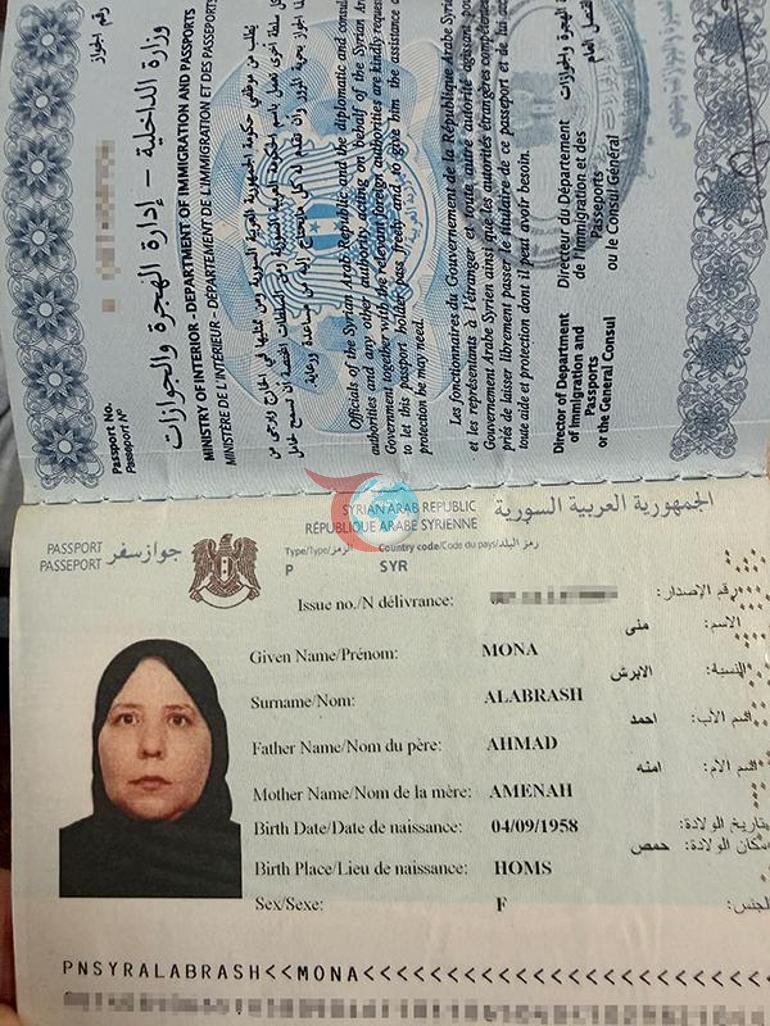 رقم الجواز
Passport No.
Passeport Nº
وزارة الداخلية – إدارة الهجرة والجوازات
MINISTRY OF INTERIOR - DEPARTMENT OF IMMIGRATION AND PASSPORTS
MINISTÈRE DE L'INTÉRIEUR - DÉPARTEMENT DE L'IMMIGRATION ET DES PASSEPORTS
يطلب من موظفي حكومة الجمهورية العربية السورية ومن ممثليها في الخارج ويرجى من
كل سلطة أخرى تعمل باسم الحكومة العربية السورية ومن السلطات المختصة أن تسمح لحامل
هذا الجواز بحرية المرور وأن تقدم له كل ما يحتاج إليه من مساعدة ورعاية
Officials of the Syrian Arab Republic and the diplomatic and consul
authorities and any other authority acting on behalf of the Syrian Ar
Government together with the relevant foreign authorities are kindly reques
to let this passport holder pass freely and to give him the assistance a
protection he may need.
Les fonctionnaires du Gouvernement de la République Arabe Syrie
et les représentants à l'étranger et toute autre autorité agissant pou
Gouvernement Arabe Syrien ainsi que les autorités étrangères compétentes
priés de laisser librement passer le titulaire de ce passeport et de lui acc
toute aide et protection dont il peut avoir besoin.
Director of Department
of Immigration and
Passports
or the General Consul
Directeur du Département
de l'Immigration et des
Passeports
ou le Consul Général
الهجرة والجوازات
القنصل العام
SYRIAN ARAB REPUBLIC
RÉPUBLIQUE ARABE SYRIENNE
الجمهورية العربية السورية
PASSPORT
PASSEPORT
جواز سفر
Type/Type/الرمز
Country code/Code du pays/رمز البلد
P
SYR
Issue no./N délivrance:
رقم الإصدار:
الاسم:
منى
Given Name/Prénom:
MONA
النسبة:
الابرش
Surname/Nom:
ALABRASH
اسم الأب:
احمد
Father Name/Nom du père:
AHMAD
اسم الأم:
امنه
Mother Name/Nom de la mère:
AMENAH
تاريخ الولادة:
Birth Date/Date de naissance:
04/09/1958
مكان الولادة:
حمص
Birth Place/Lieu de naissance:
HOMS
الجنس:
Sex/Sexe:
F
PNSYRALABRASH<<MONA<<<<<<<<<<<<<<<<<<<<<<<<